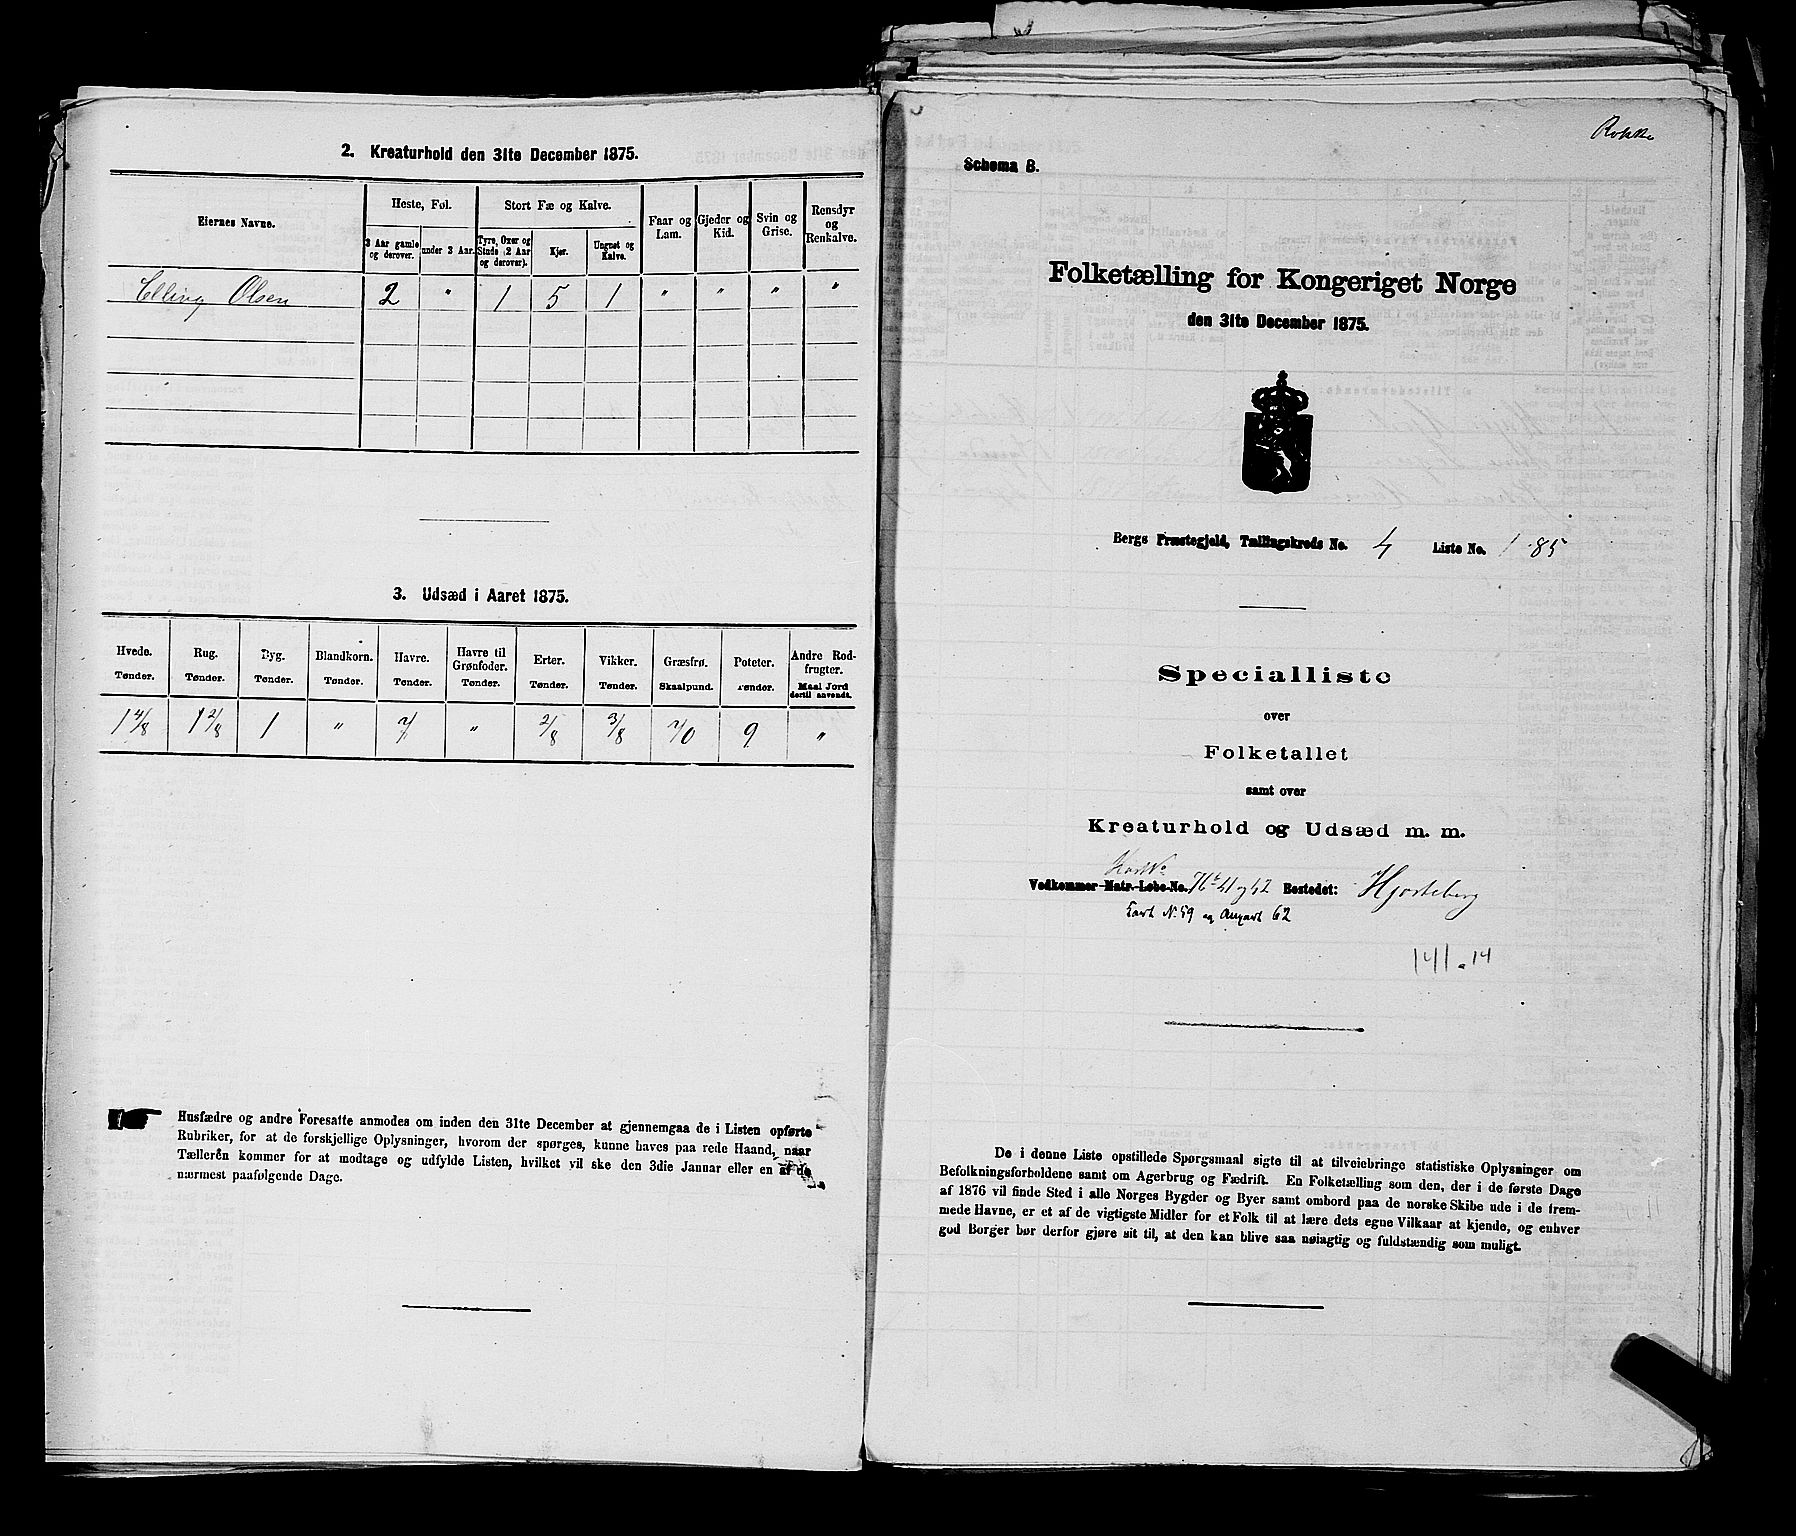 2. Kreaturhold den 31te December 1875.
Eiernes Navne.
Heste, Føl.
Stort Fæ og Kalve.
Faar og Lam.
Gjeder og Kid.
Svin og Grise.
Rensdyr og Renkalve.
3 Aar gamle og derover.
under 3 Aar.
Tyre, Oxer og Stude (2 Aar og derover).
Kjør.
Ungnøt og Kalve.
Elling Olsen 2 " 1 5 1 " " " "
3. Udsæd i Aaret 1875.
Hvede. Rug. Byg. Blandkorn. Havre. Havre til Grønfoder. Erter. Vikker. Græsfrø. Poteter. Andre Rodfrugter.
Tønder. Tønder. Tønder. Tønder. Tønder. Tønder. Tønder. Tønder. Skaalpund. Tønder. Maal Jord dertil anvendt.
1 4/8 1 2/8 1 " 7 " 2/8 3/8 70 9 "
Husfædre og andre Foresatte anmodes om inden den 31te December at gjennemgaa de i Listen opførte
Rubriker, for at de forskjellige Oplysninger, hvorom der spørges, kunne haves paa rede Haand, naar
Tælleren kommer for at modtage og udfylde Listen, hvilket vil ske den 3die Januar eller en af de
nærmest paafølgende Dage.
Rokke
Schema B.
Folketælling for Kongeriget Norge
den 31te December 1875.
Bergs Præstegjeld, Tællingskreds No. 4 Liste No. 185
Specialliste
over
Folketallet
samt over
Kreaturhold og Udsæd m. m.
Vedkommer Matr.-Løbe-No. 76 41 og 42 Bostedet: Hjorteberg
Kart No 59 og Angart 62
141.14
De i denne Liste opstillede Spørgsmaal sigte til at tilveiebringe statistiske Oplysninger om
Befolkningsforholdene samt om Agerbrug og Fædrift. En Folketælling som den, der i de første Dage
af 1876 vil finde Sted i alle Norges Bygder og Byer samt ombord paa de norske Skibe ude i de frem-
mede Havne, er et af de vigtigste Midler for et Folk til at lære dets egne Vilkaar at kjende, og enhver
god Borger bør derfor gjøre sit til, at den kan blive saa nøiagtig og fuldstændig som muligt.